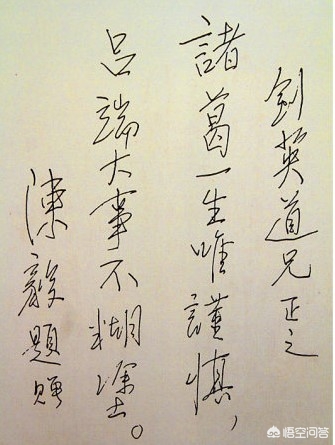 劍英道兄正之
諸葛一生唯謹慎，
呂端大事不糊涂。
陳毅題贈
悟空问答